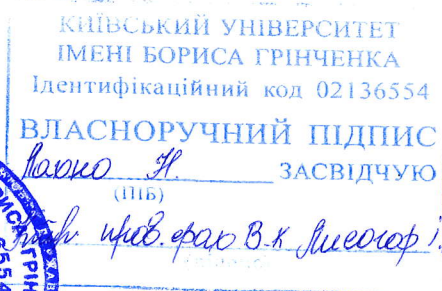 КИЇВСЬКИЙ УНІВЕРСИТЕТ
ІМЕНІ БОРИСА ГРІНЧЕНКА
Ідентифікаційний код 02136554
ВЛАСНОРУЧНИЙ ПІДПИС
Н. ЗАСВІДЧУЮ
(ПІБ)
пров. фах В.К Лисогор І.